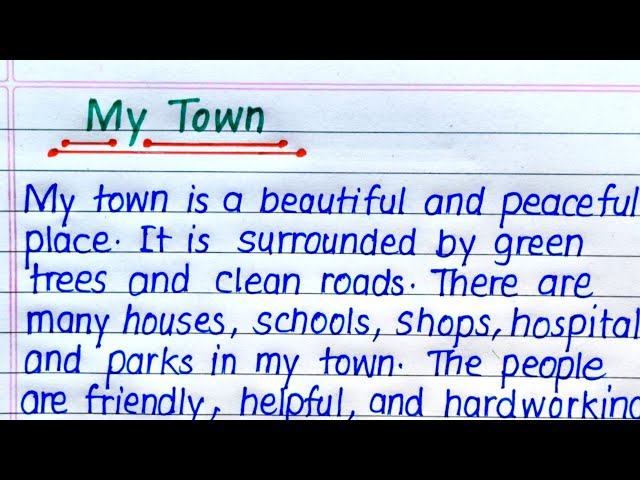 My Town
My town is a beautiful and peaceful
place. It is surrounded by green
trees and clean roads. There are
many houses, schools, shops, hospital
and parks in my town. The people
are friendly, helpful, and hardworking